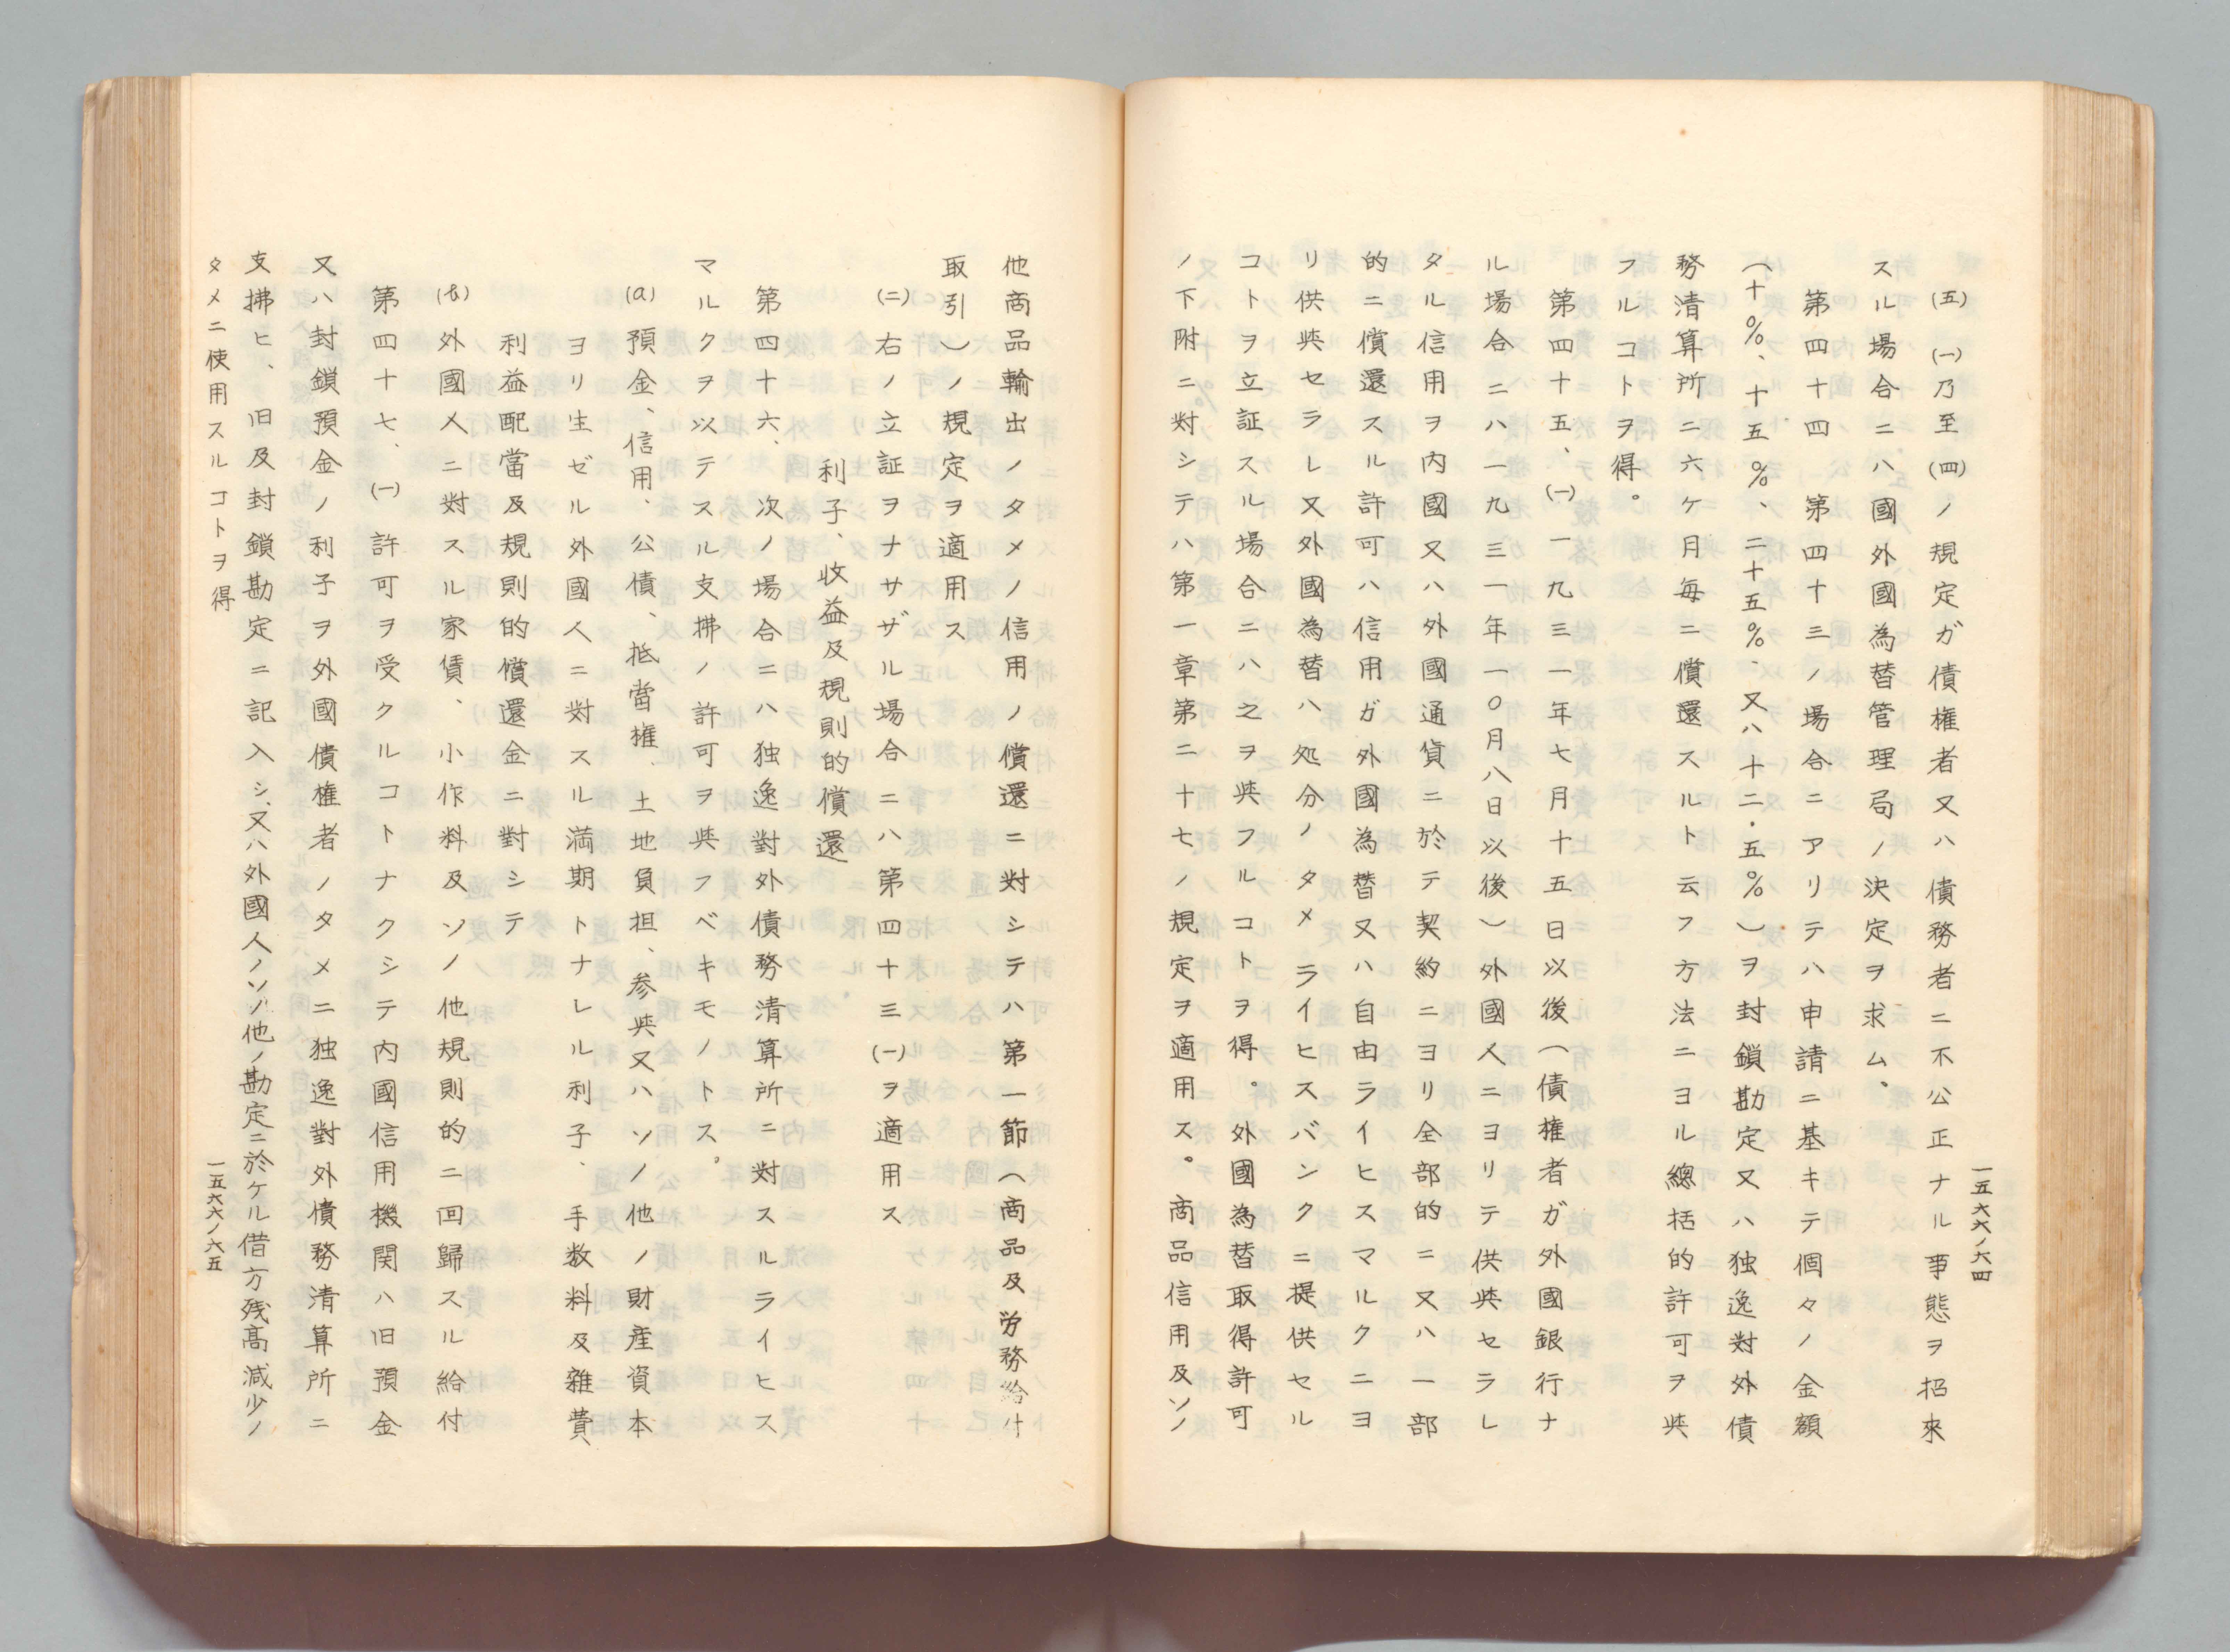 一五六六ノ六四
(五) (一)乃至(四)ノ規定ガ債権者又ハ債務者ニ不公正ナル事態ヲ招來
スル場合ニハ國外國為替管理局ノ決定ヲ求ム、
第四十四 第四十三ノ場合ニアリテハ申請ニ基キテ個々ノ金額
(十%、十五%、二十五%、又ハ十二・五%)ヲ封鎖勘定又ハ独逸對外債
務清算所ニ六ケ月毎ニ償還スルト云フ方法ニヨル總括的許可ヲ與
フルコトヲ得。
第四十五、(一) 一九三一年七月十五日以後(債権者ガ外國銀行ナ
ル場合ニハ一九三一年一〇月八日以後)外國人ニヨリテ供與セラレ
タル信用ヲ内國又ハ外國通貨ニ於テ契約ニヨリ全部的ニ又ハ一部
的ニ償還スル許可ハ信用ガ外國為替又ハ自由ライヒスマルクニヨ
リ供與セラレ又外國為替ハ処分ノタメライヒスバンクニ提供セル
コトヲ立証スル場合ニハ之ヲ與フルコトヲ得。外國為替取得許可
ノ下附ニ対シテハ第一章第二十七ノ規定ヲ適用ス。商品信用及ソノ
他商品輸出ノタメノ信用ノ償還ニ対シテハ第一節(商品及労務給付
取引)ノ規定ヲ適用ス
(二) 右ノ立証ヲナサザル場合ニハ第四十三(一)ヲ適用ス
利子、收益及規則的償還
第四十六、次ノ場合ニハ独逸對外債務清算所ニ対スルライヒス
マルクヲ以テスル支拂ノ許可ヲ與フベキモノトス。
(a) 預金、信用、公債、抵當権、土地負担、参與又ハソノ他ノ財産資本
ヨリ生ゼル外國人ニ対スル満期トナレル利子、手数料及雑費、
利益配當及規則的償還金ニ對シテ
(b) 外國人ニ対スル家賃、小作料及ソノ他規則的ニ回歸スル給付
第四十七、(一) 許可ヲ受クルコトナクシテ内國信用機関ハ旧預金
又ハ封鎖預金ノ利子ヲ外國債権者ノタメニ独逸對外債務清算所ニ
支拂ヒ、旧及封鎖勘定ニ記入シ、又ハ外國人ノソノ他ノ勘定ニ於ケル借方残高減少ノ
タメニ使用スルコトヲ得
一五六六ノ六五